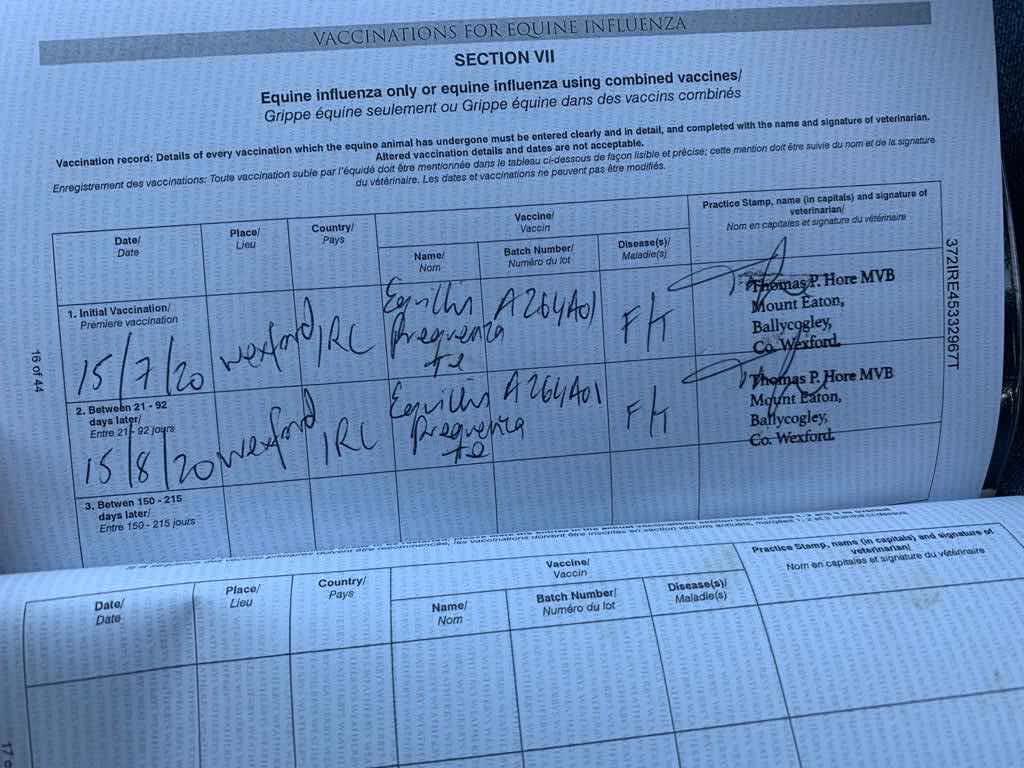 VACCINATIONS FOR EQUINE INFLUENZA
SECTION VII
Equine influenza only or equine influenza using combined vaccines/
Grippe équine seulement ou Grippe équine dans des vaccins combinés
Vaccination record: Details of every vaccination which the equine animal has undergone must be entered clearly and in detail, and completed with the name and signature of veterinarian.
Altered vaccination details and dates are not acceptable.
Enregistrement des vaccinations: Toute vaccination subie par l'équidé doit être mentionnée dans le tableau ci-dessous de façon lisible et précise; cette mention doit être suivie du nom et de la signature
du vétérinaire. Les dates et vaccinations ne peuvent pas être modifiés.
Date/
Date
Place/
Lieu
Country/
Pays
Vaccine/
Vaccin
Name/
Nom
Batch Number/
Numéro du lot
Disease(s)/
Maladie(s)
Practice Stamp, name (in capitals) and signature of
veterinarian/
Nom en capitales et signature du vétérinaire
1. Initial Vaccination/
Première vaccination
15/7/20
wexford
IRL
Equilis
Prequenza
Te
A264A01
Thomas P. Hore MVB
Mount Eaton,
Ballycogley,
Co. Wexford.
2. Between 21 - 92
days later/
Entre 21 - 92 jours
15/8/20
wexford
IRL
Equilis
Prequenza
Te
A264A01
Thomas P. Hore MVB
Mount Eaton,
Ballycogley,
Co. Wexford.
3. Betwen 150 - 215
days later/
Entre 150 - 215 jours
16 of 44
372IRE45332967T
Date/
Date
Place/
Lieu
Country/
Pays
Vaccine/
Vaccin
Name/
Nom
Batch Number/
Numéro du lot
Disease(s)/
Maladie(s)
Practice Stamp, name (in capitals) and signature of
veterinarian/
Nom en capitales et signature du vétérinaire
17